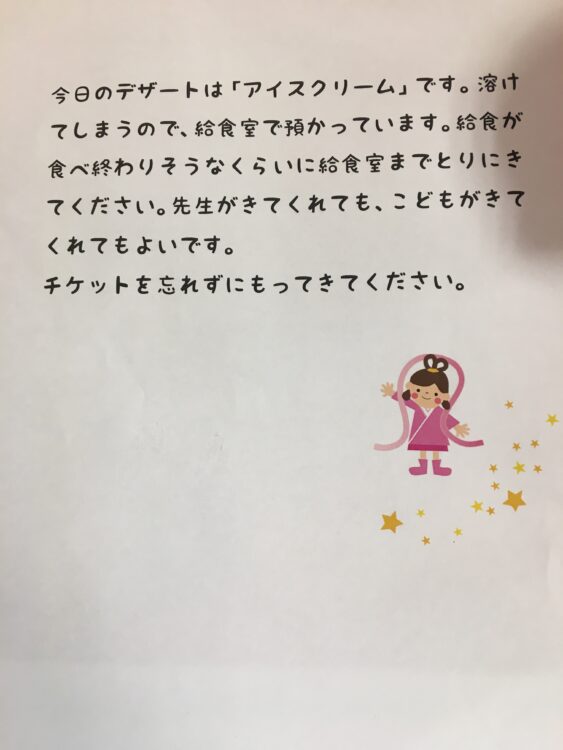 今日のデザートは「アイスクリーム」です。溶け
てしまうので、給食室で預かっています。給食が
食べ終わりそうなくらいに給食室までとりにき
てください。先生がきてくれても、こどもがきて
くれてもよいです。
チケットを忘れずにもってきてください。